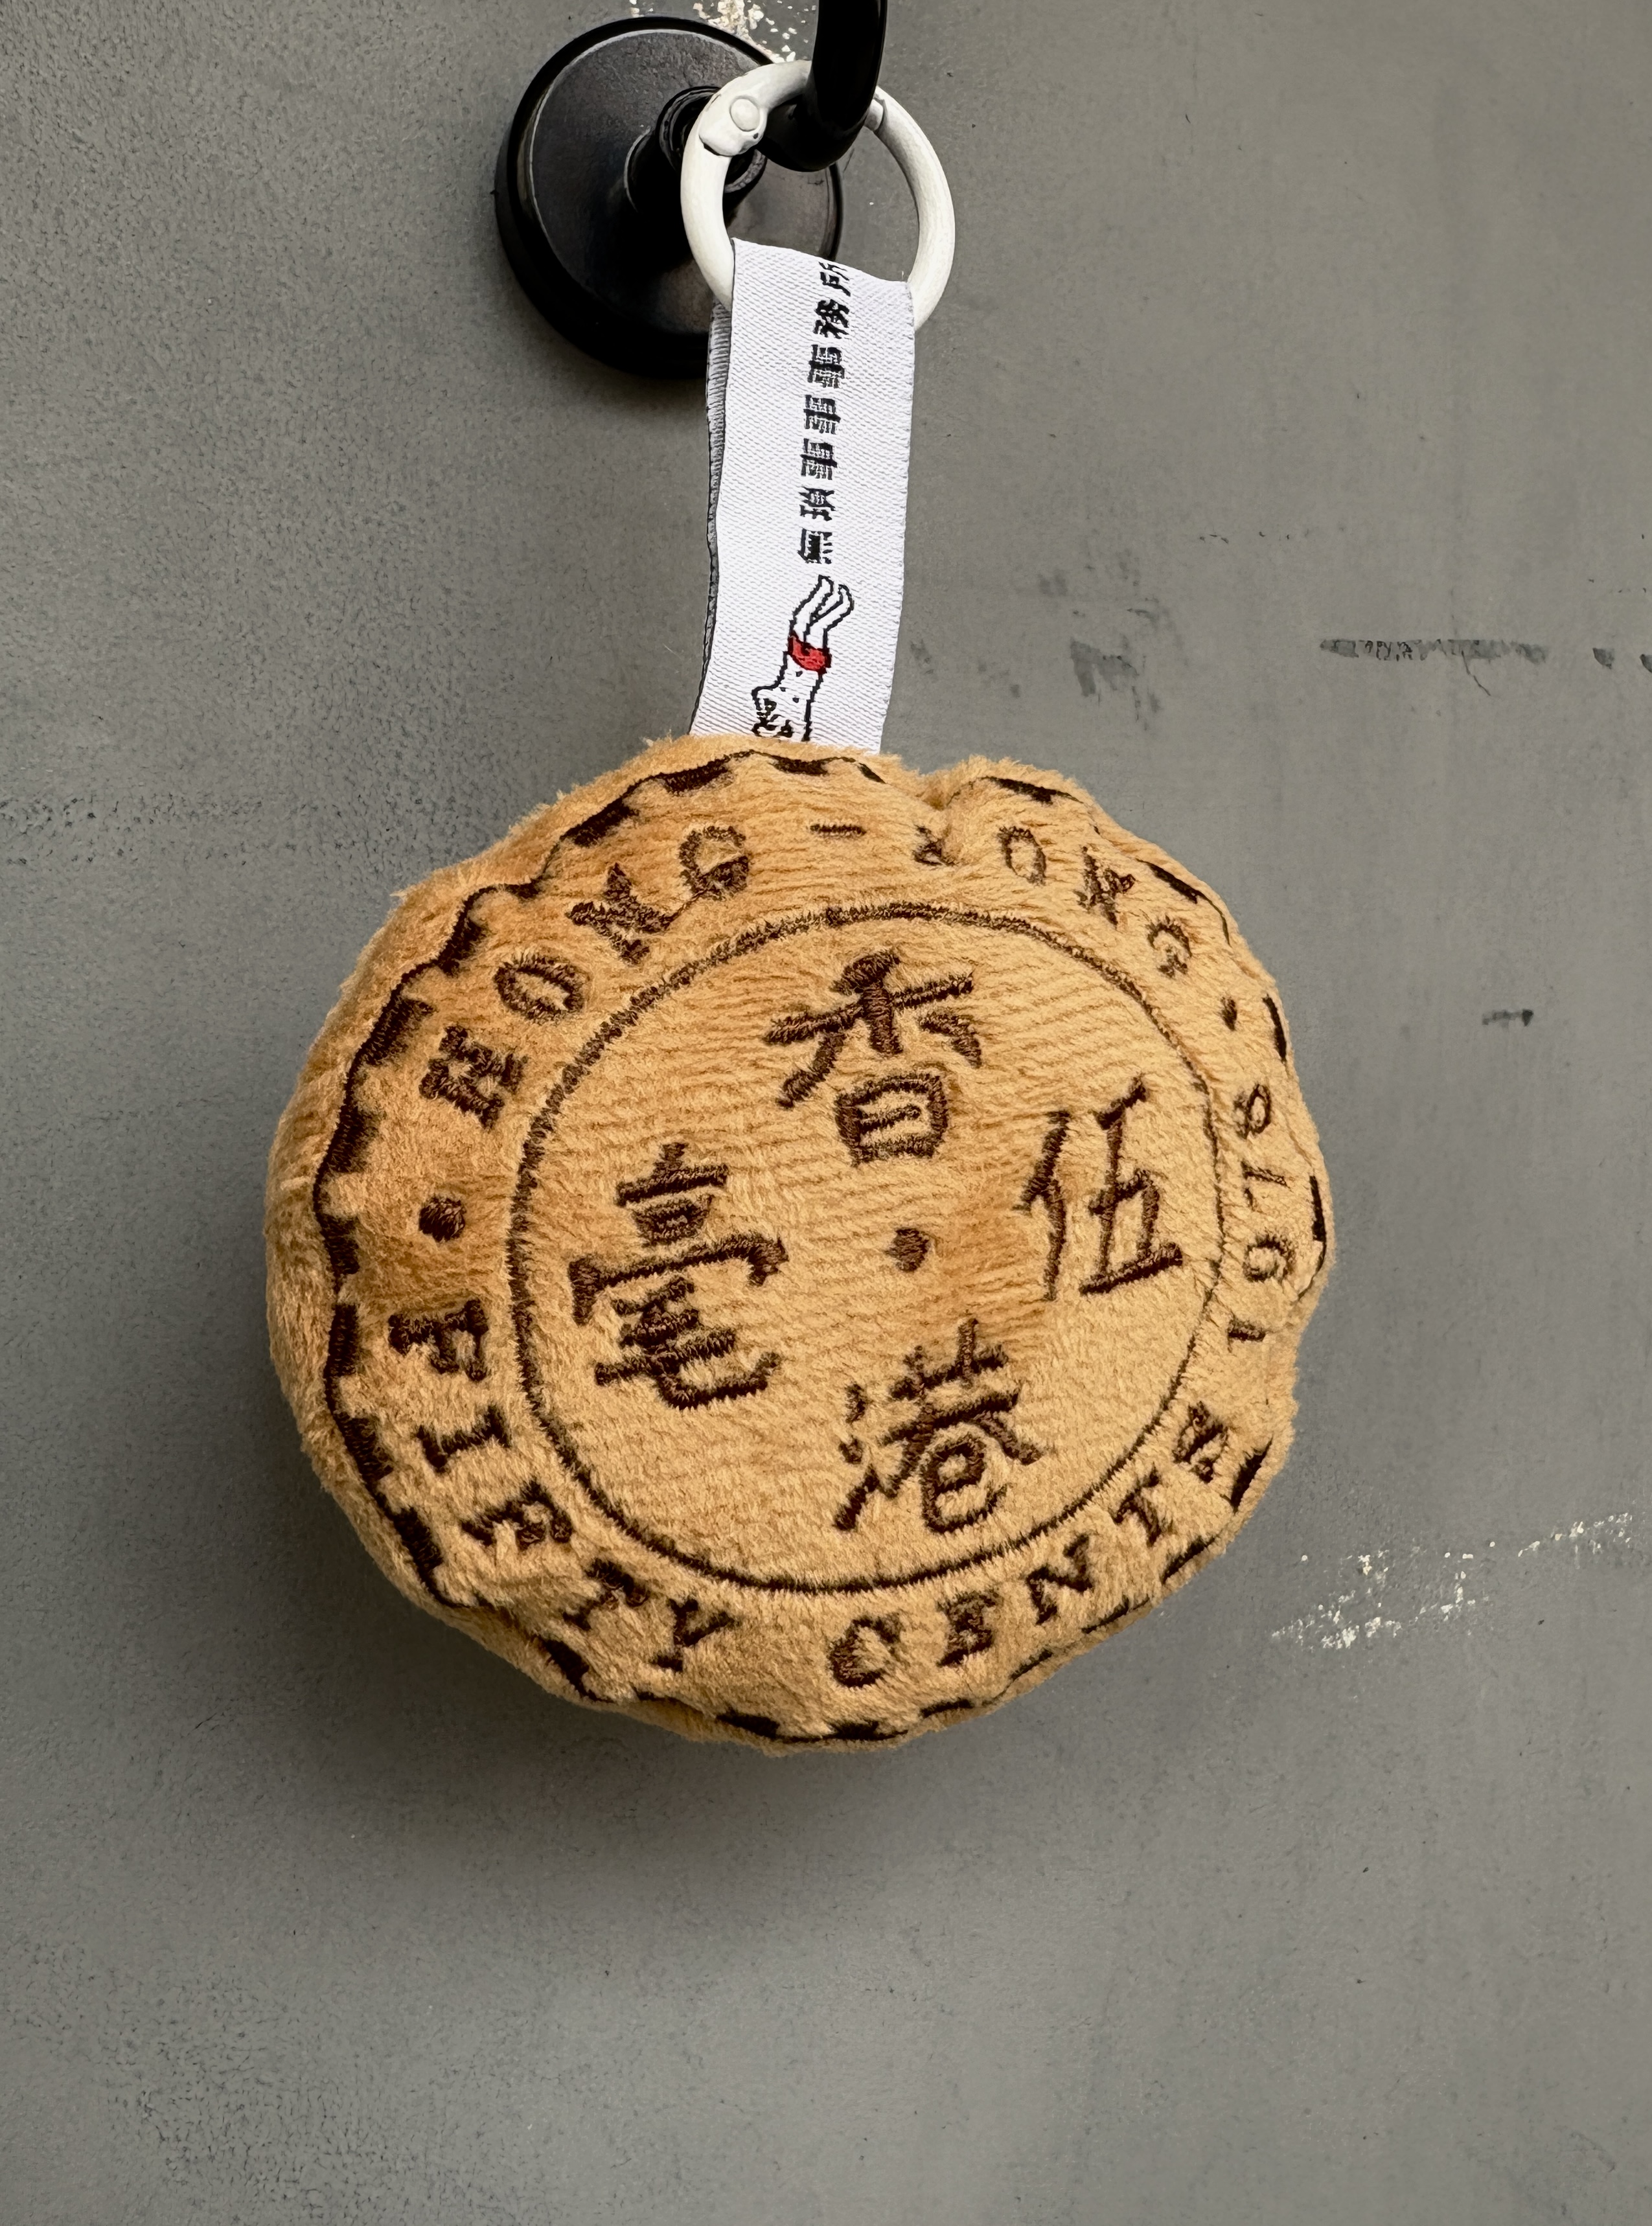 無瑣事事事務所
HONG - KONG
1978
FIFTY CENTS
香港
伍毫